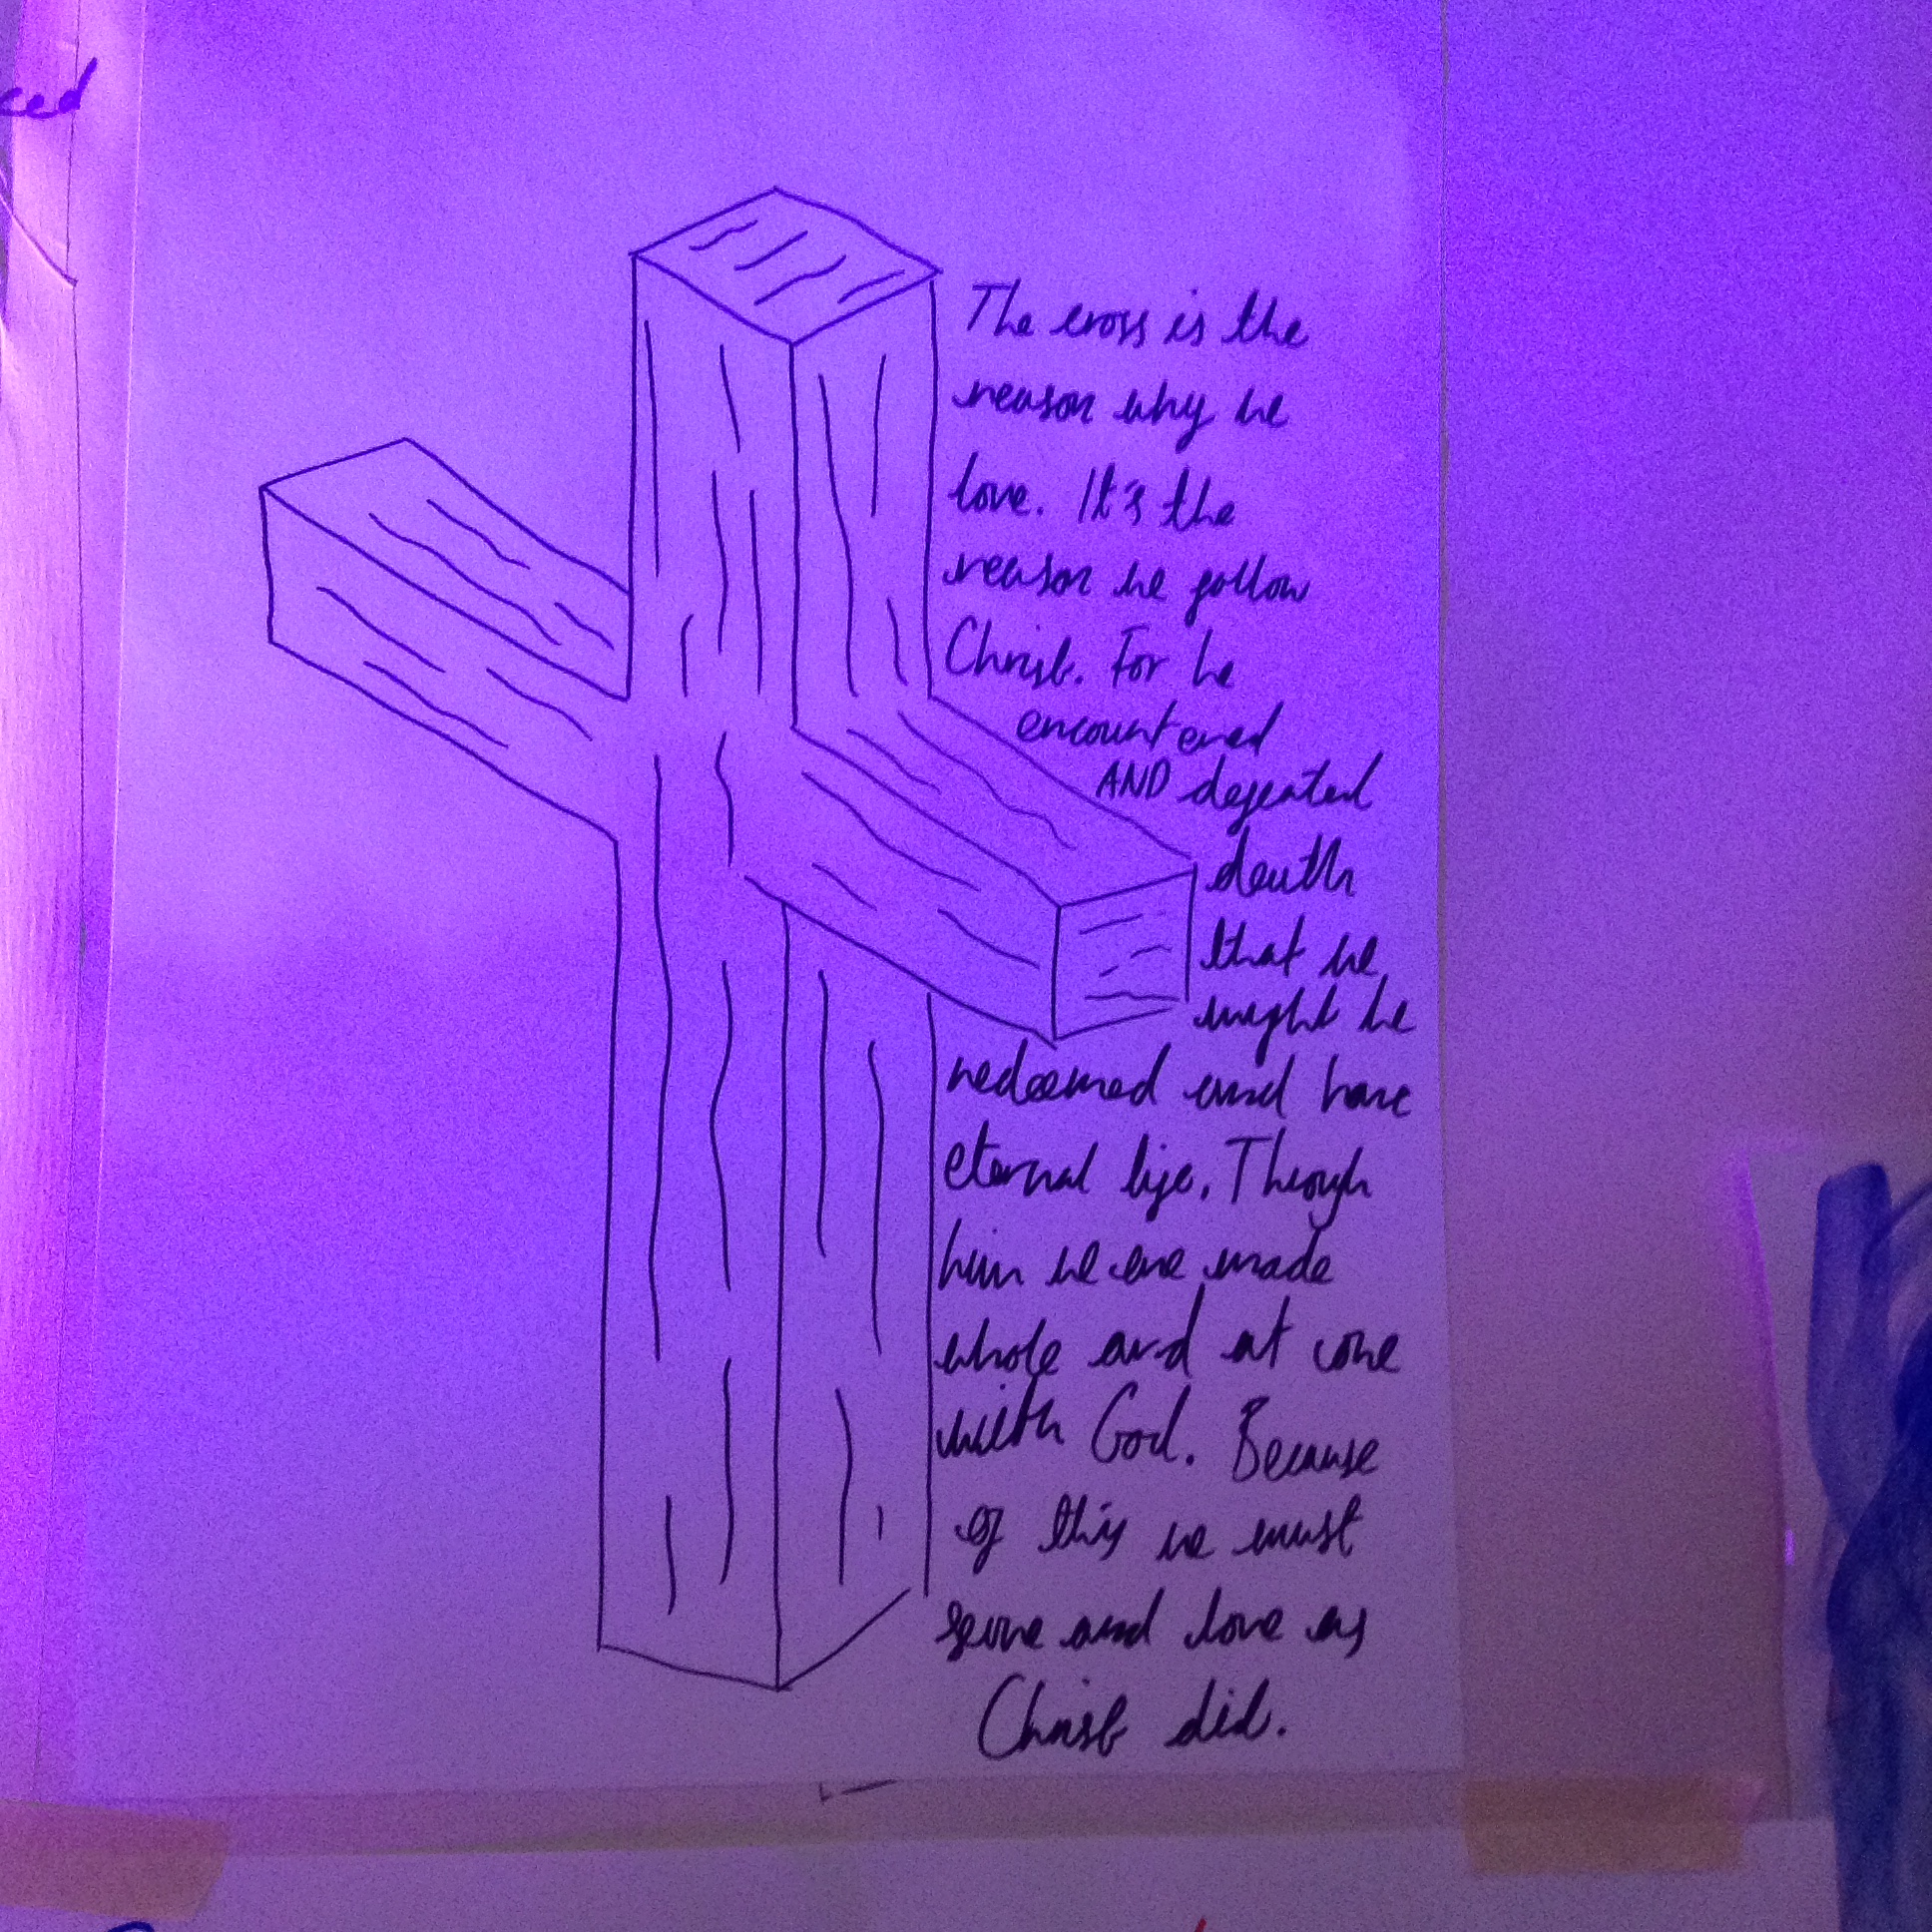 ced
The cross is the
reason why we
love. It's the
reason we follow
Christ. For he
encountered
AND defeated
death
that we
might be
redeemed and have
eternal life. Through
him we are made
whole and at one
with God. Because
of this we must
serve and love as
Christ did.